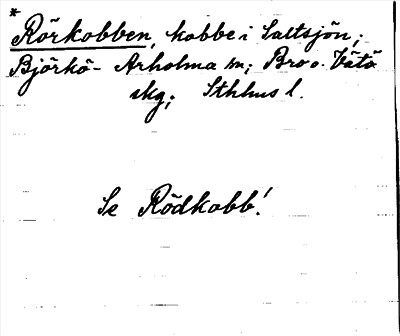 *
Rörkobben, kobbe i Saltsjön;
Björkö-Arholma sn; Bro o. Vätö
skg; Sthlms l.
Se Rödkobb!